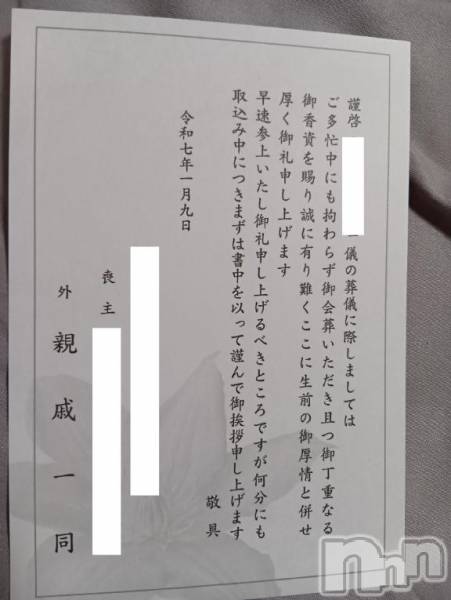 謹啓
儀の葬儀に際しましては
ご多忙中にも拘わらず御会葬いただき且つ御丁重なる
御香資を賜り誠に有り難くここに生前の御厚情と併せ
厚く御礼申し上げます
早速参上いたし御礼申し上げるべきところですが何分にも
取込み中につきまずは書中を以って謹んで御挨拶申し上げます
敬具
令和七年一月九日
喪主
外親戚一同
nnn